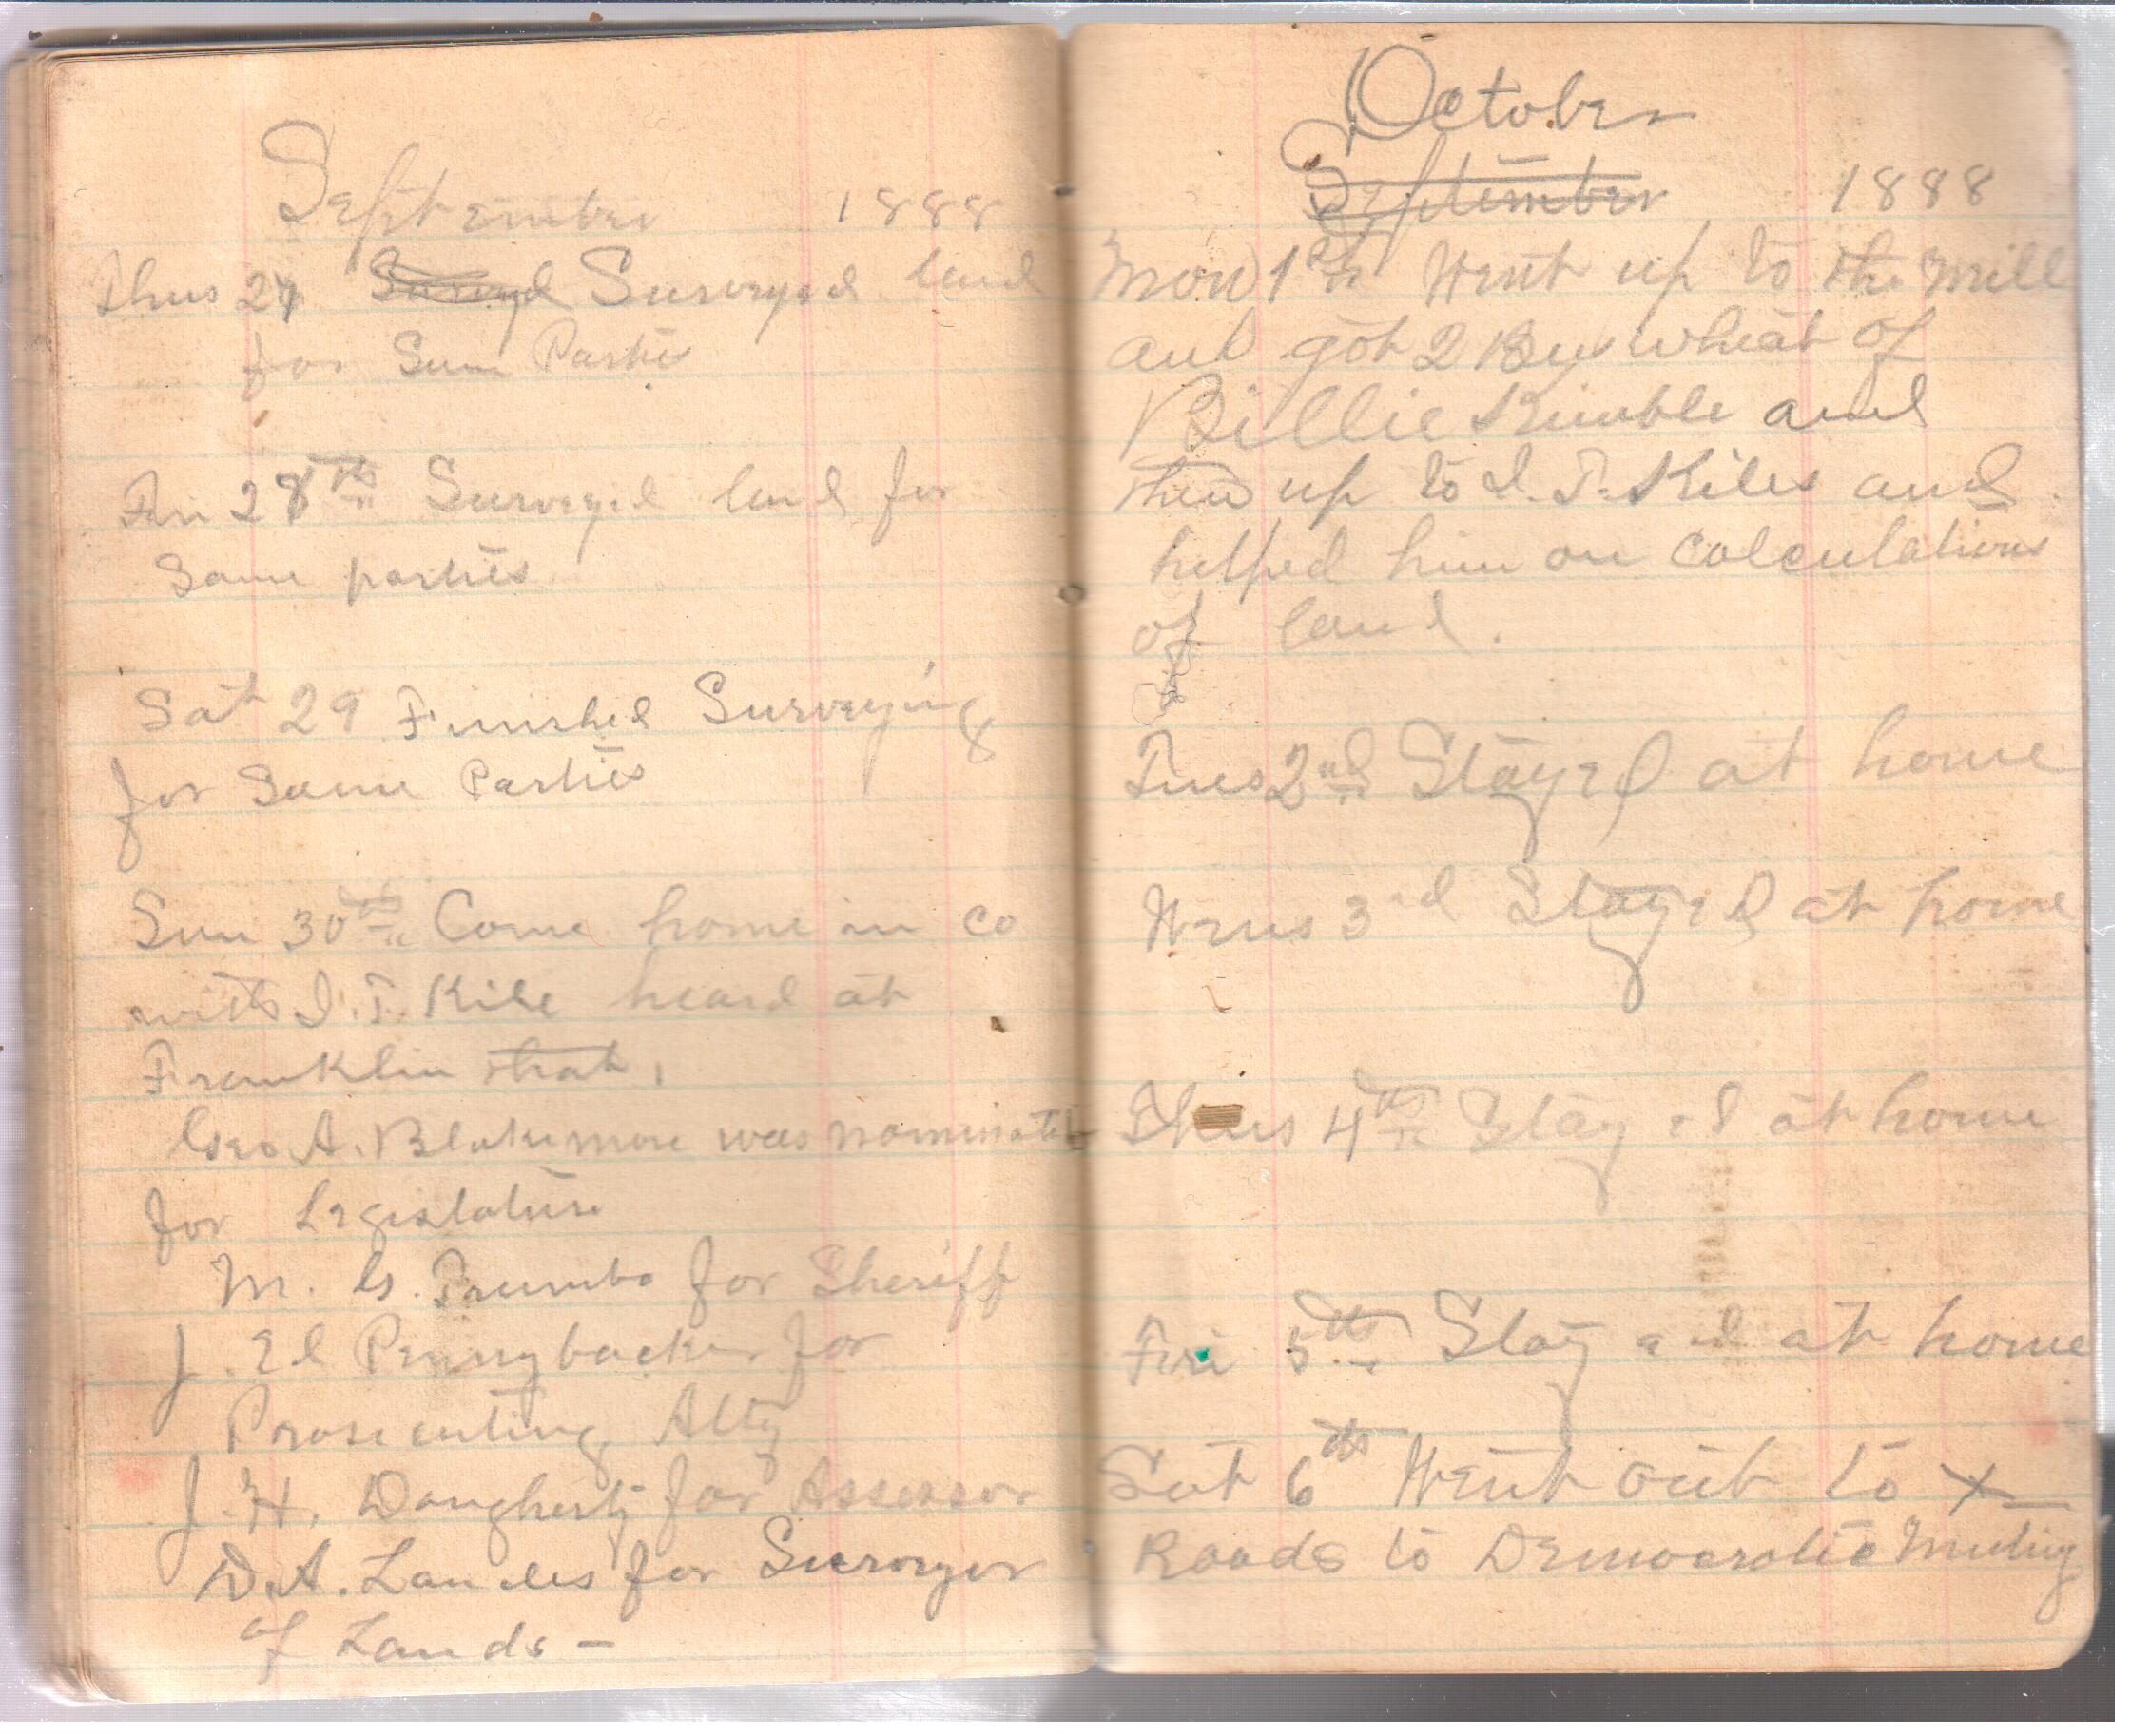 September 1888
Thus 27 Surveyed land
for Sum Parties
Fri 28th Surveyed land for
Same parties
Sat 29 Finished Surveying
for Same Parties
Sun 30th Come home in co
with I. T. Kile heard at
Franklin that,
Geo A. Blakemore was nominated
for Legislature
M. G. Trumbo for Sheriff
J. Ed Pennybacker for
Prosecuting Atty
J. H. Daugherty for Assessor
D. A. Landes for Surveyor
of Lands -
October
September 1888
Mon 1st Went up to the Mill
and got 2 Bu wheat of
Billie Kimble and
then up to I. T. Kiles and
helped him on Calculations
of land.
Tues 2nd Stayed at home
Wens 3rd Stayed at home
Thus 4th Stayed at home
Fri 5th Stayed at home
Sat 6th Went out to X
Roads to Democratic Meeting